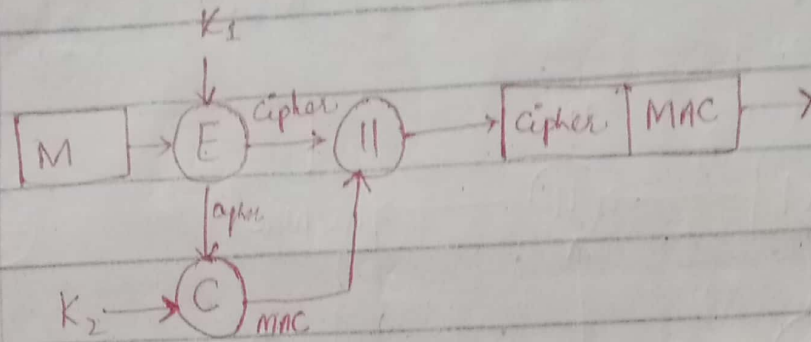 K1
M
E
Cipher
||
Cipher
MAC
Cipher
K2
C
MAC